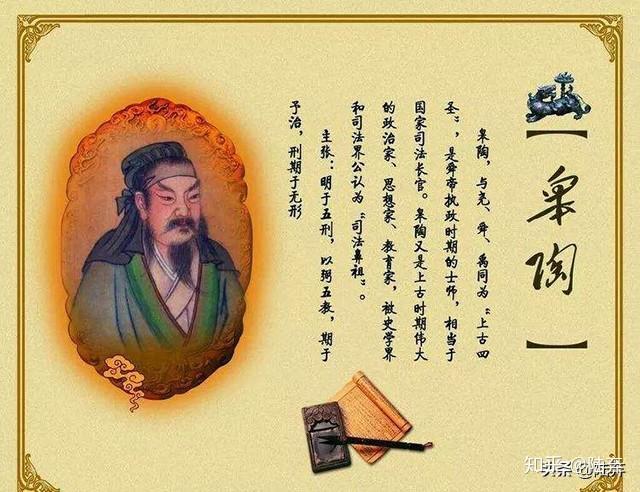 【皋陶】
皋陶，与尧、舜、禹同为“上古四
圣”，是舜帝执政时期的士师，相当于
国家司法长官。皋陶又是上古时期伟大
的政治家、思想家、教育家，被史学界
和司法界公认为“司法鼻祖”。
主张：明于五刑，以弼五教，期于
予治，刑期于无形
知乎 @陆弃
头条 @陆弃